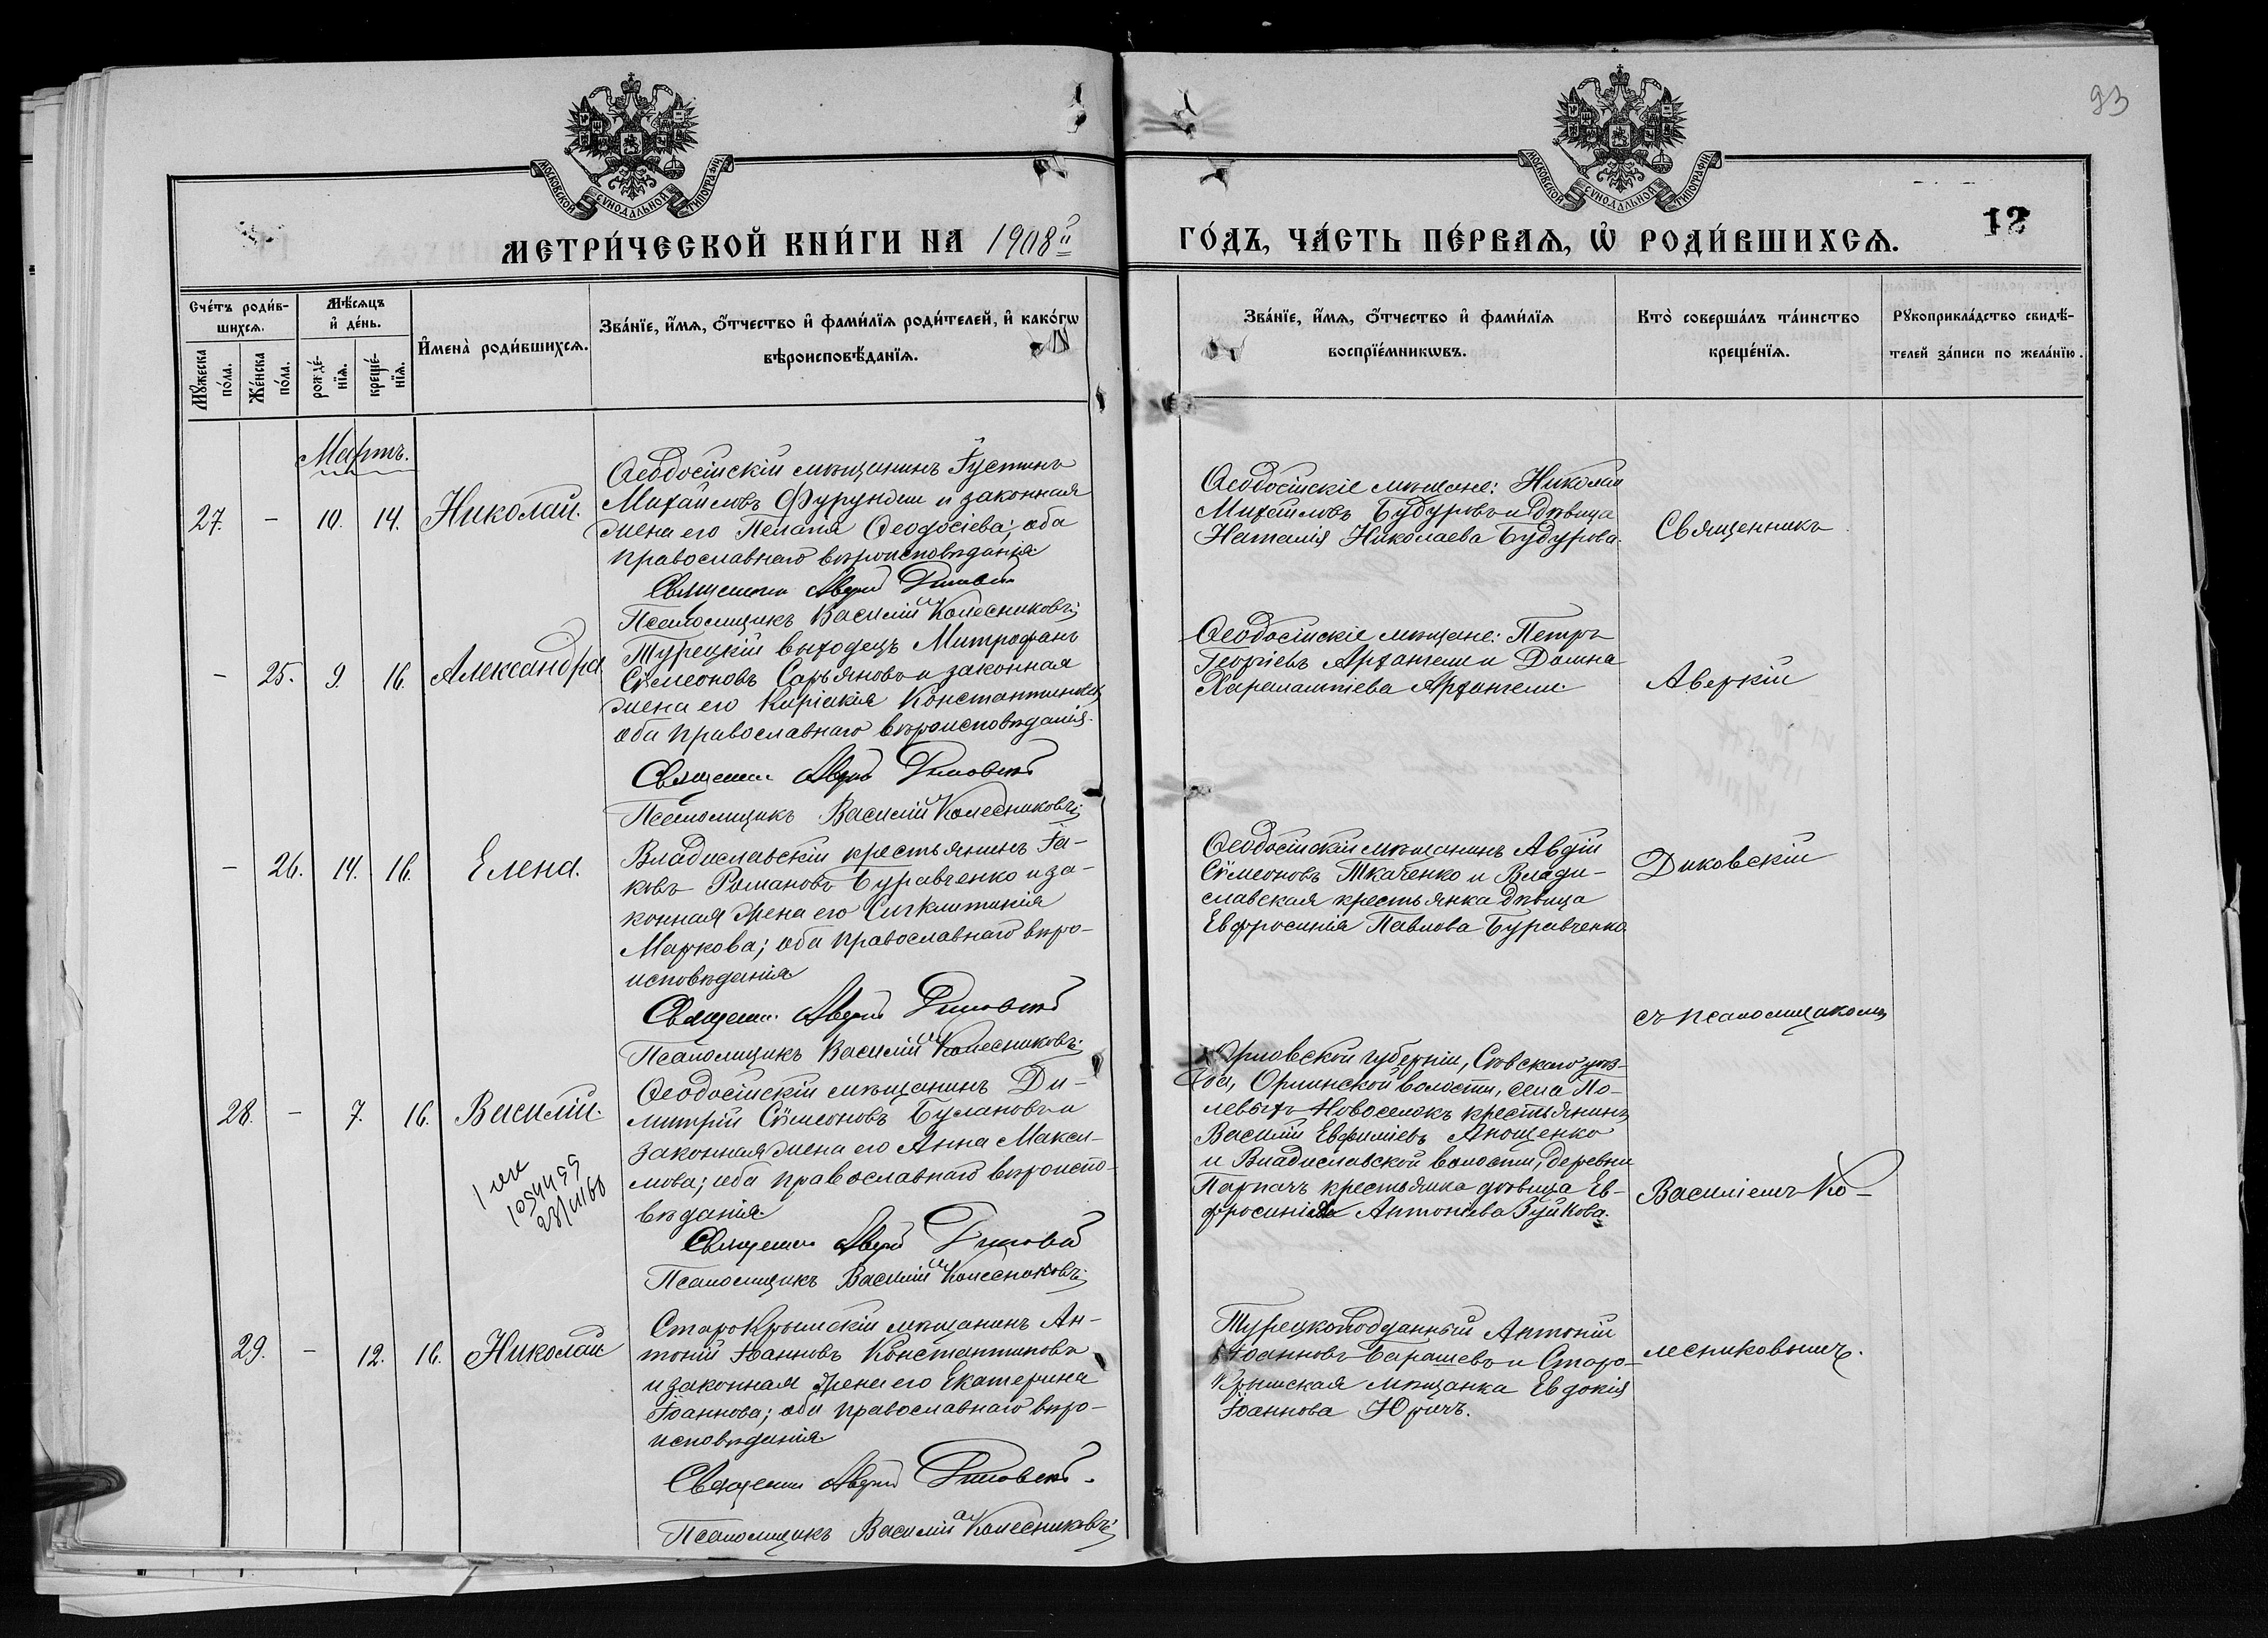 93
МОСКОВСКОЙ СУНОДАЛЬНОЙ ТИПОГРАФІИ
МОСКОВСКОЙ СУНОДАЛЬНОЙ ТИПОГРАФІИ
МЕТРИ́ЧЕСКОЙ КНИ́ГИ НА 1908й
ГО́ДЪ, ЧА́СТЬ ПЕ́РВАѦ, Ѡ РОДИ́ВШИХСѦ.
12
Сче́тъ роди́в-
шихсѧ.
Мꙋ́жеска по́ла.
Же́нска по́ла.
Мѣ́сѧцъ
и҆ де́нь.
рожде́-
нїѧ.
креще́-
нїѧ.
И҆мена̀ роди́вшихсѧ.
Зва́нїе, и҆́мѧ, ѻ҆́тчество и҆ фами́лїѧ роди́телей, и҆ како́гѡ
вѣроисповѣ́данїѧ.
Зва́нїе, и҆́мѧ, ѻ҆́тчество и҆ фами́лїѧ
воспрїе́мникѡвъ.
Кто̀ соверша́лъ та́инство
креще́нїѧ.
Рꙋкоприкла́дство свидѣ́-
телей за́писи по жела́нїю.
Мартъ.
27. - 10. 14. Николай.
Ѳеодосійскій мѣщанинъ Іустинъ
Михайловъ Фурунджи и законная
жена его Пелагія Ѳеодосіева; оба
православнаго вѣроисповѣданія
Священникъ Аверкій Диковскій
Псаломщикъ Василій Колесниковъ;
Ѳеодосійскіе мѣщане: Николай
Михайловъ Бубуровъ и дѣвица
Наталія Николаева Бубурова.
Священникъ
- 25. 9. 16. Александра
Турецкій выходецъ Митрофанъ
Сѵмеоновъ Сарьяновъ и законная
жена его Киріакія Константинова;
оба православнаго вѣроисповѣданія.
Священникъ Аверкій Диковскій
Псаломщикъ Василій Колесниковъ;
Ѳеодосійскіе мѣщане: Петръ
Георгіевъ Арфангели и Домна
Харалампіева Арфангели.
Аверкій
- 26. 14. 16. Елена.
Владиславскій крестьянинъ Іа-
ковъ Романовъ Буравченко и за-
конная жена его Сигклитикія
Маркова; оба православнаго вѣро-
исповѣданія
Священникъ Аверкій Диковскій
Псаломщикъ Василій Колесниковъ;
Ѳеодосійскій мѣщанинъ Авдій
Сѵмеоновъ Ткаченко и Влади-
славская крестьянка дѣвица
Евфросинія Павлова Буравченко
Диковскій
съ псаломщикомъ
28. - 7. 16. Василій.
Ѳеодосійскій мѣщанинъ Ди-
митрій Сѵмеоновъ Булановъ и
законная жена его Анна Макси-
мова; оба православнаго вѣроиспо-
вѣданія
Священникъ Аверкій Диковскій
Псаломщикъ Василій Колесниковъ;
Орловской губерніи, Сѣвскаго уѣз-
да, Орлинской волости, села По-
левыхъ Новоселокъ крестьянинъ
Василій Евфиміевъ Анощенко
и Владиславской волости, деревни
Парпачъ крестьянка дѣвица Ев-
фросинія Антоніева Зуйкова.
Василіемъ Ко-
29. - 12. 16. Николай
Старокрымскій мѣщанинъ Ан-
тоній Іоанновъ Константиновъ
и законная жена его Екатерина
Іоаннова; оба православнаго вѣро-
исповѣданія.
Священникъ Аверкій Диковскій.
Псаломщикъ Василій Колесниковъ;
Турецкоподданный Антоній
Іоанновъ Барашевъ и Старо-
Крымская мѣщанка Евдокія
Іоаннова Юричъ.
лесниковымъ.